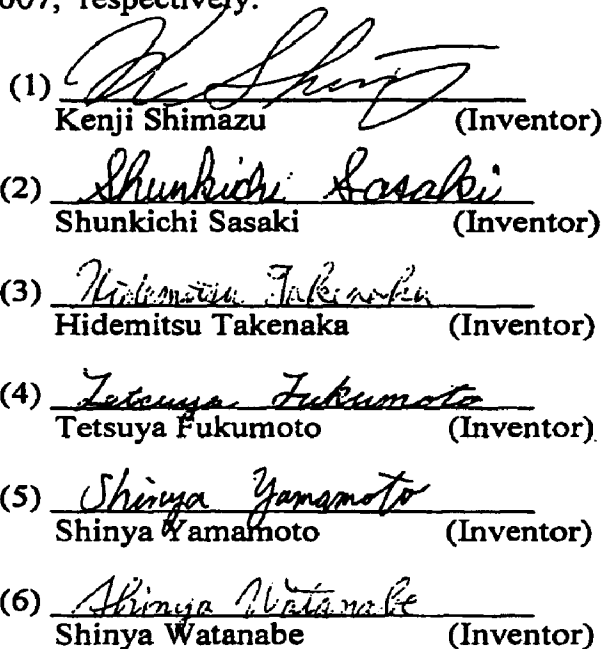 007, respectively.
(1) K Shim
Kenji Shimazu (Inventor)
(2) Shunkichi Sasaki
Shunkichi Sasaki (Inventor)
(3) Hidemitsu Takenaka
Hidemitsu Takenaka (Inventor)
(4) Tetsuya Fukumoto
Tetsuya Fukumoto (Inventor)
(5) Shinya Yamamoto
Shinya Yamamoto (Inventor)
(6) Shinya Watanabe
Shinya Watanabe (Inventor)